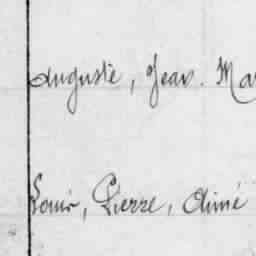 Auguste, Jean. Ma
Louis, Pierre, Aimé